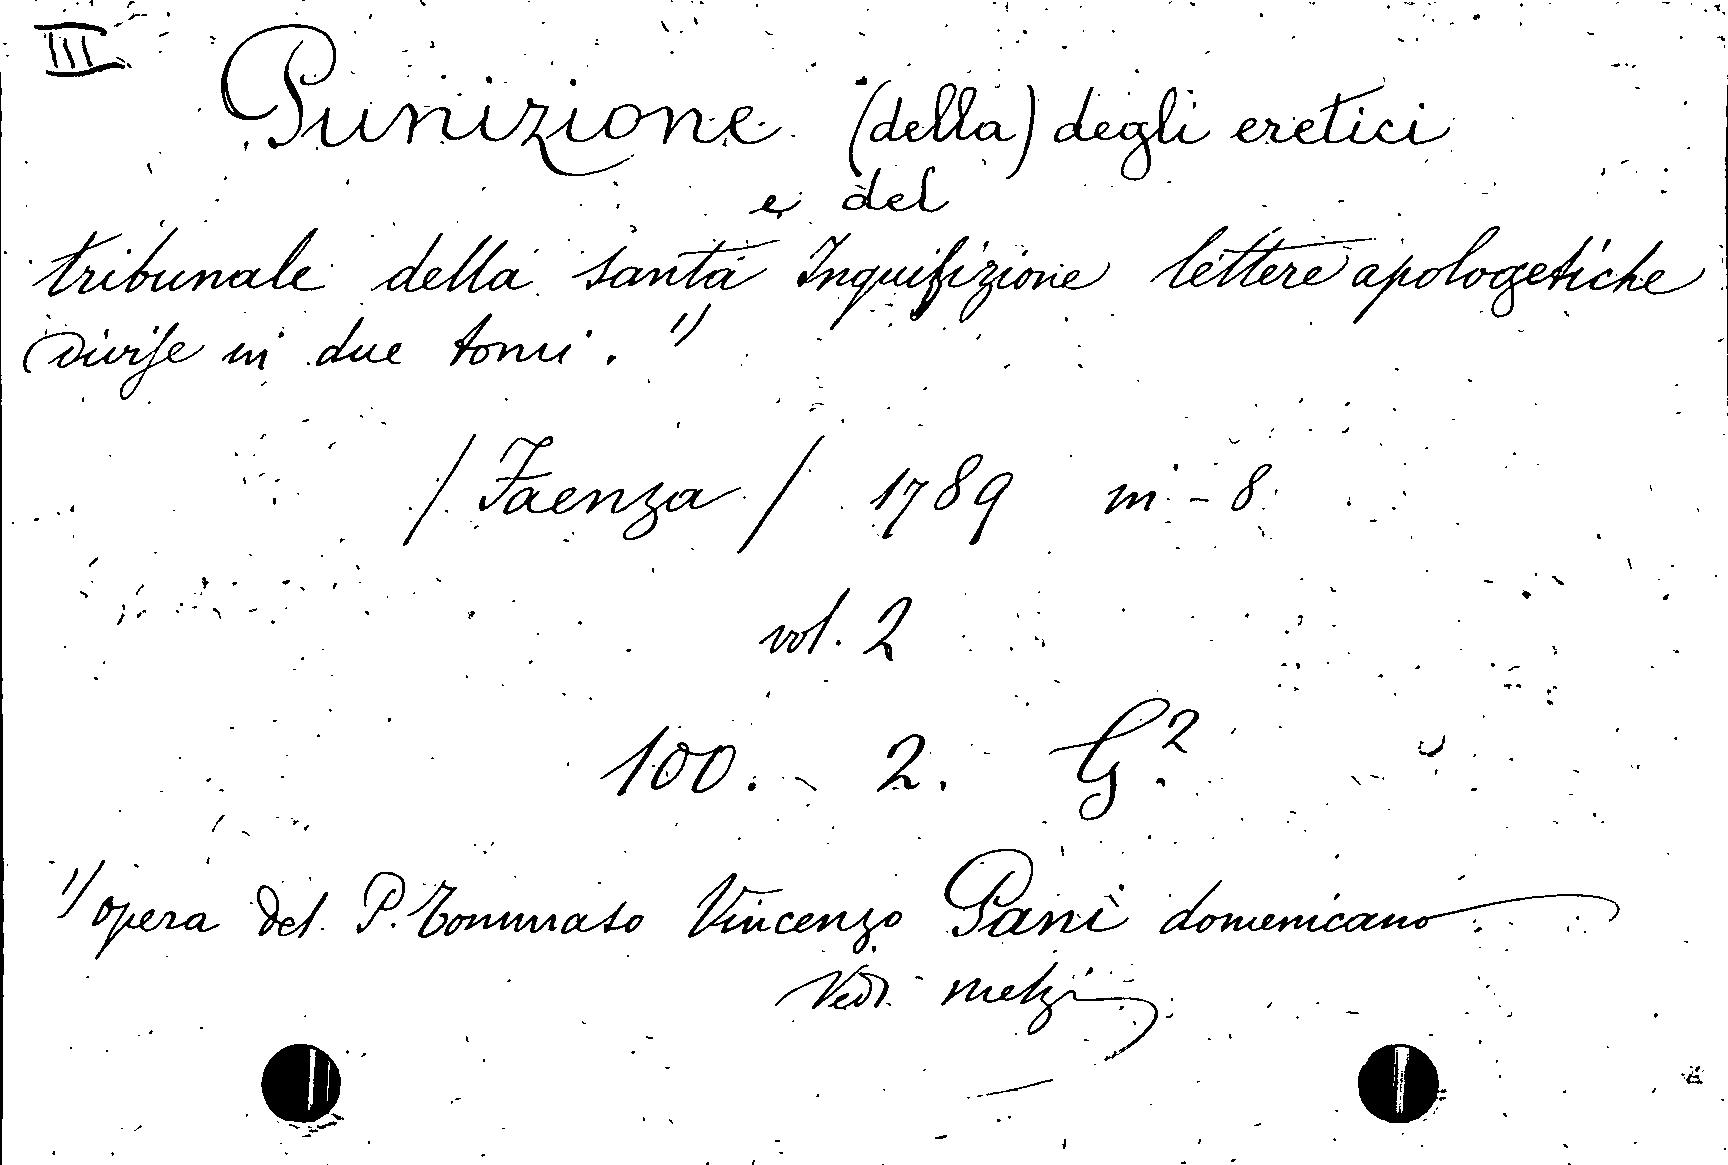 III.
Punizione (della) degli eretici
e del
tribunale della santa Inquisizione lettere apologetiche
divise in due tomi. 1)
/ Faenza / 1789 in - 8
vol. 2
100. - 2. G.2
1) opera del P. Tommaso Vincenzo Pani domenicano
Vedi Melzi